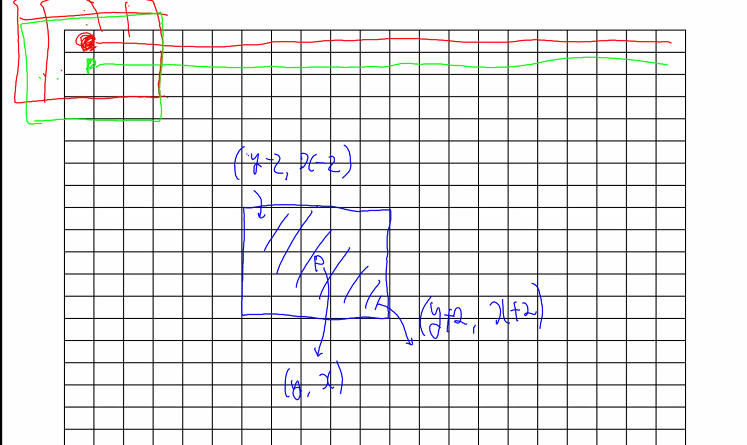 (y-2, x-2)
P
(y+2, x+2)
(y, x)